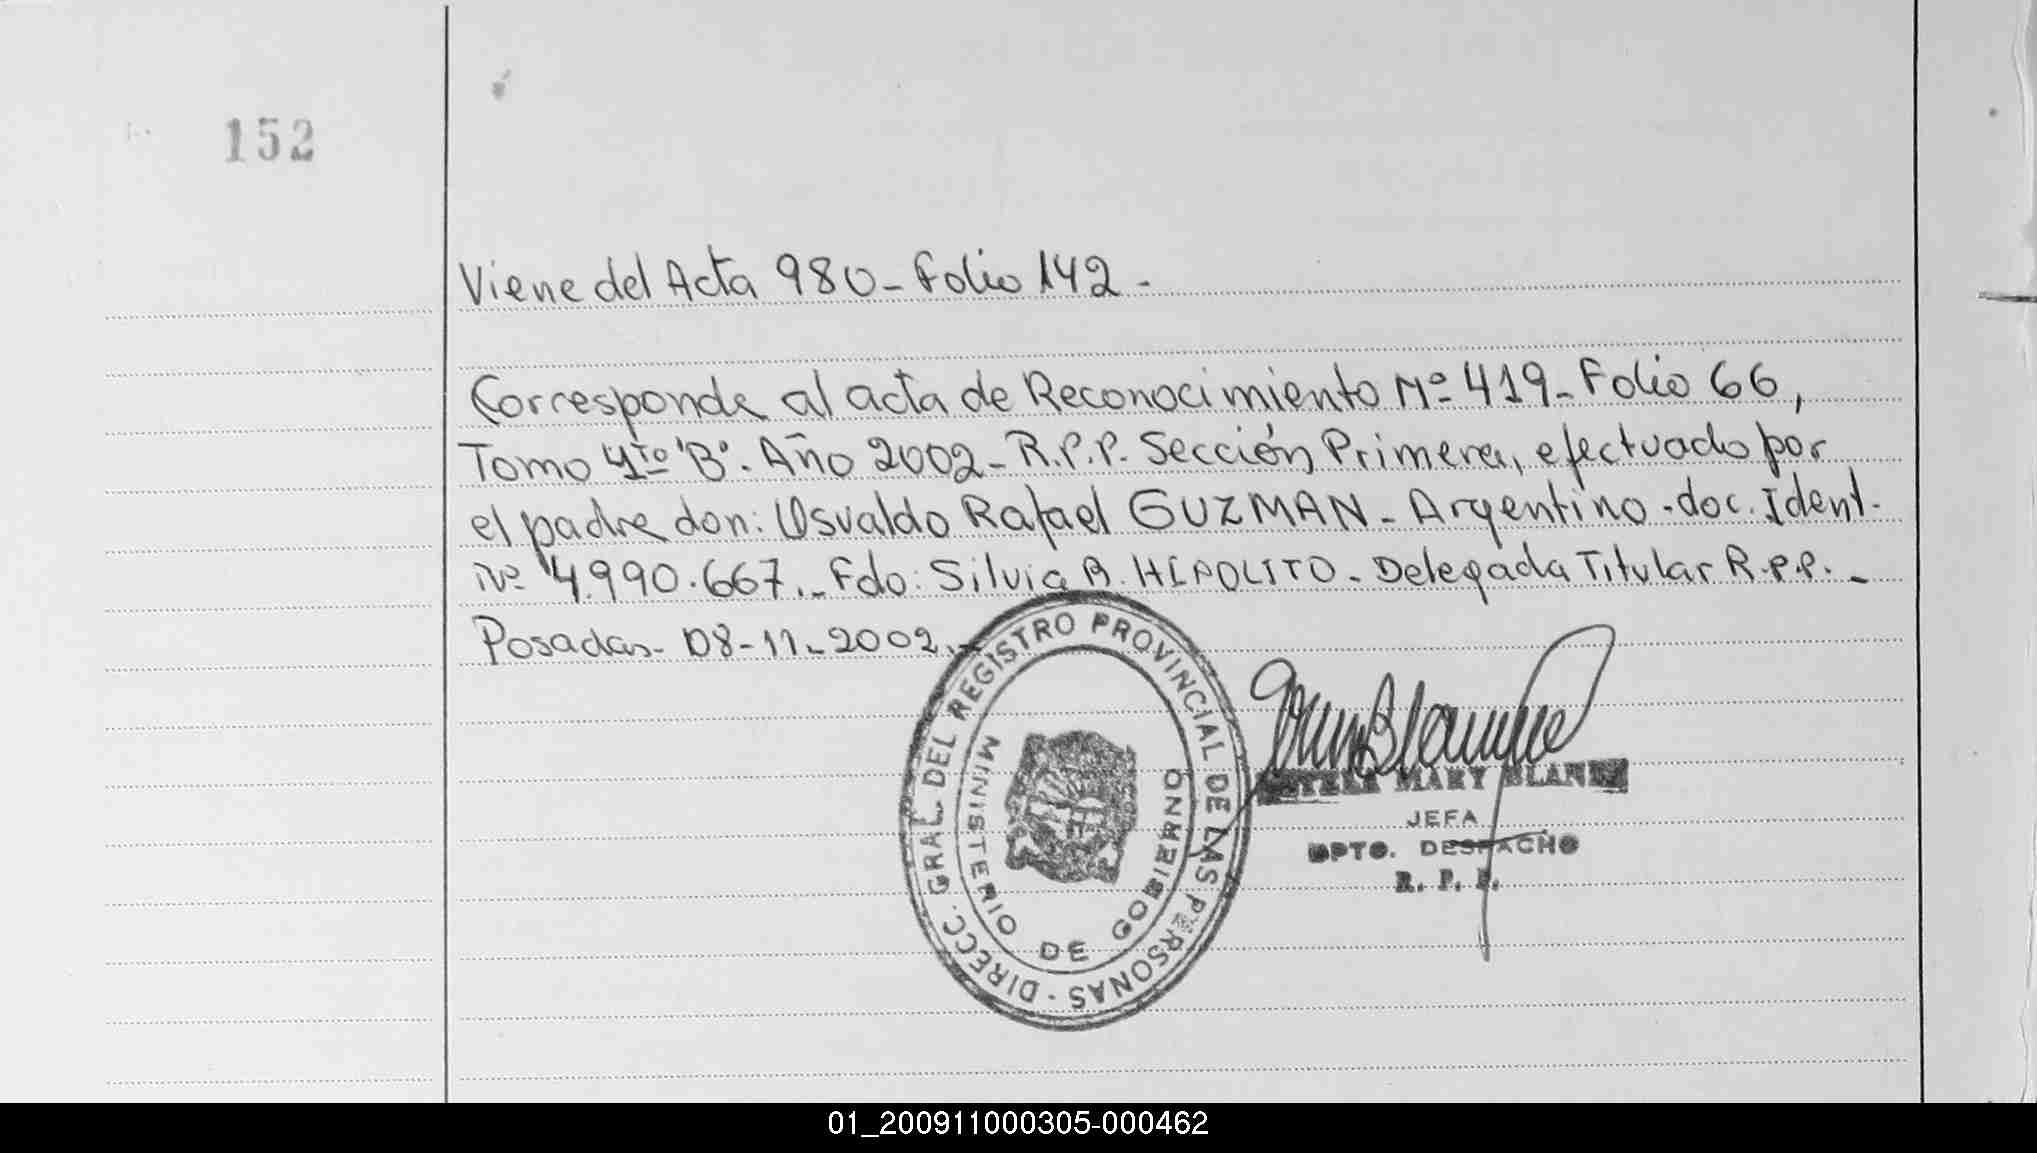 152
Viene del Acta 980 - Folio 142 -
Corresponde al acta de Reconocimiento Nº 419 - Folio 66,
Tomo 4to "B". Año 2002 - R.P.P. Sección Primera, efectuado por
el padre don: Osvaldo Rafael GUZMAN - Argentino - doc. Ident.
Nº 4.990.667. - Fdo: Silvia B. HIPOLITO - Delegada Titular R.P.P. -
Posadas - 08-11-2002. -
DIRECC. GRAL. DEL REGISTRO PROVINCIAL DE LAS PERSONAS -
MINISTERIO DE GOBIERNO
MARY
JEFA
DPTO. DESPACHO
R. P. P.
01_200911000305-000462